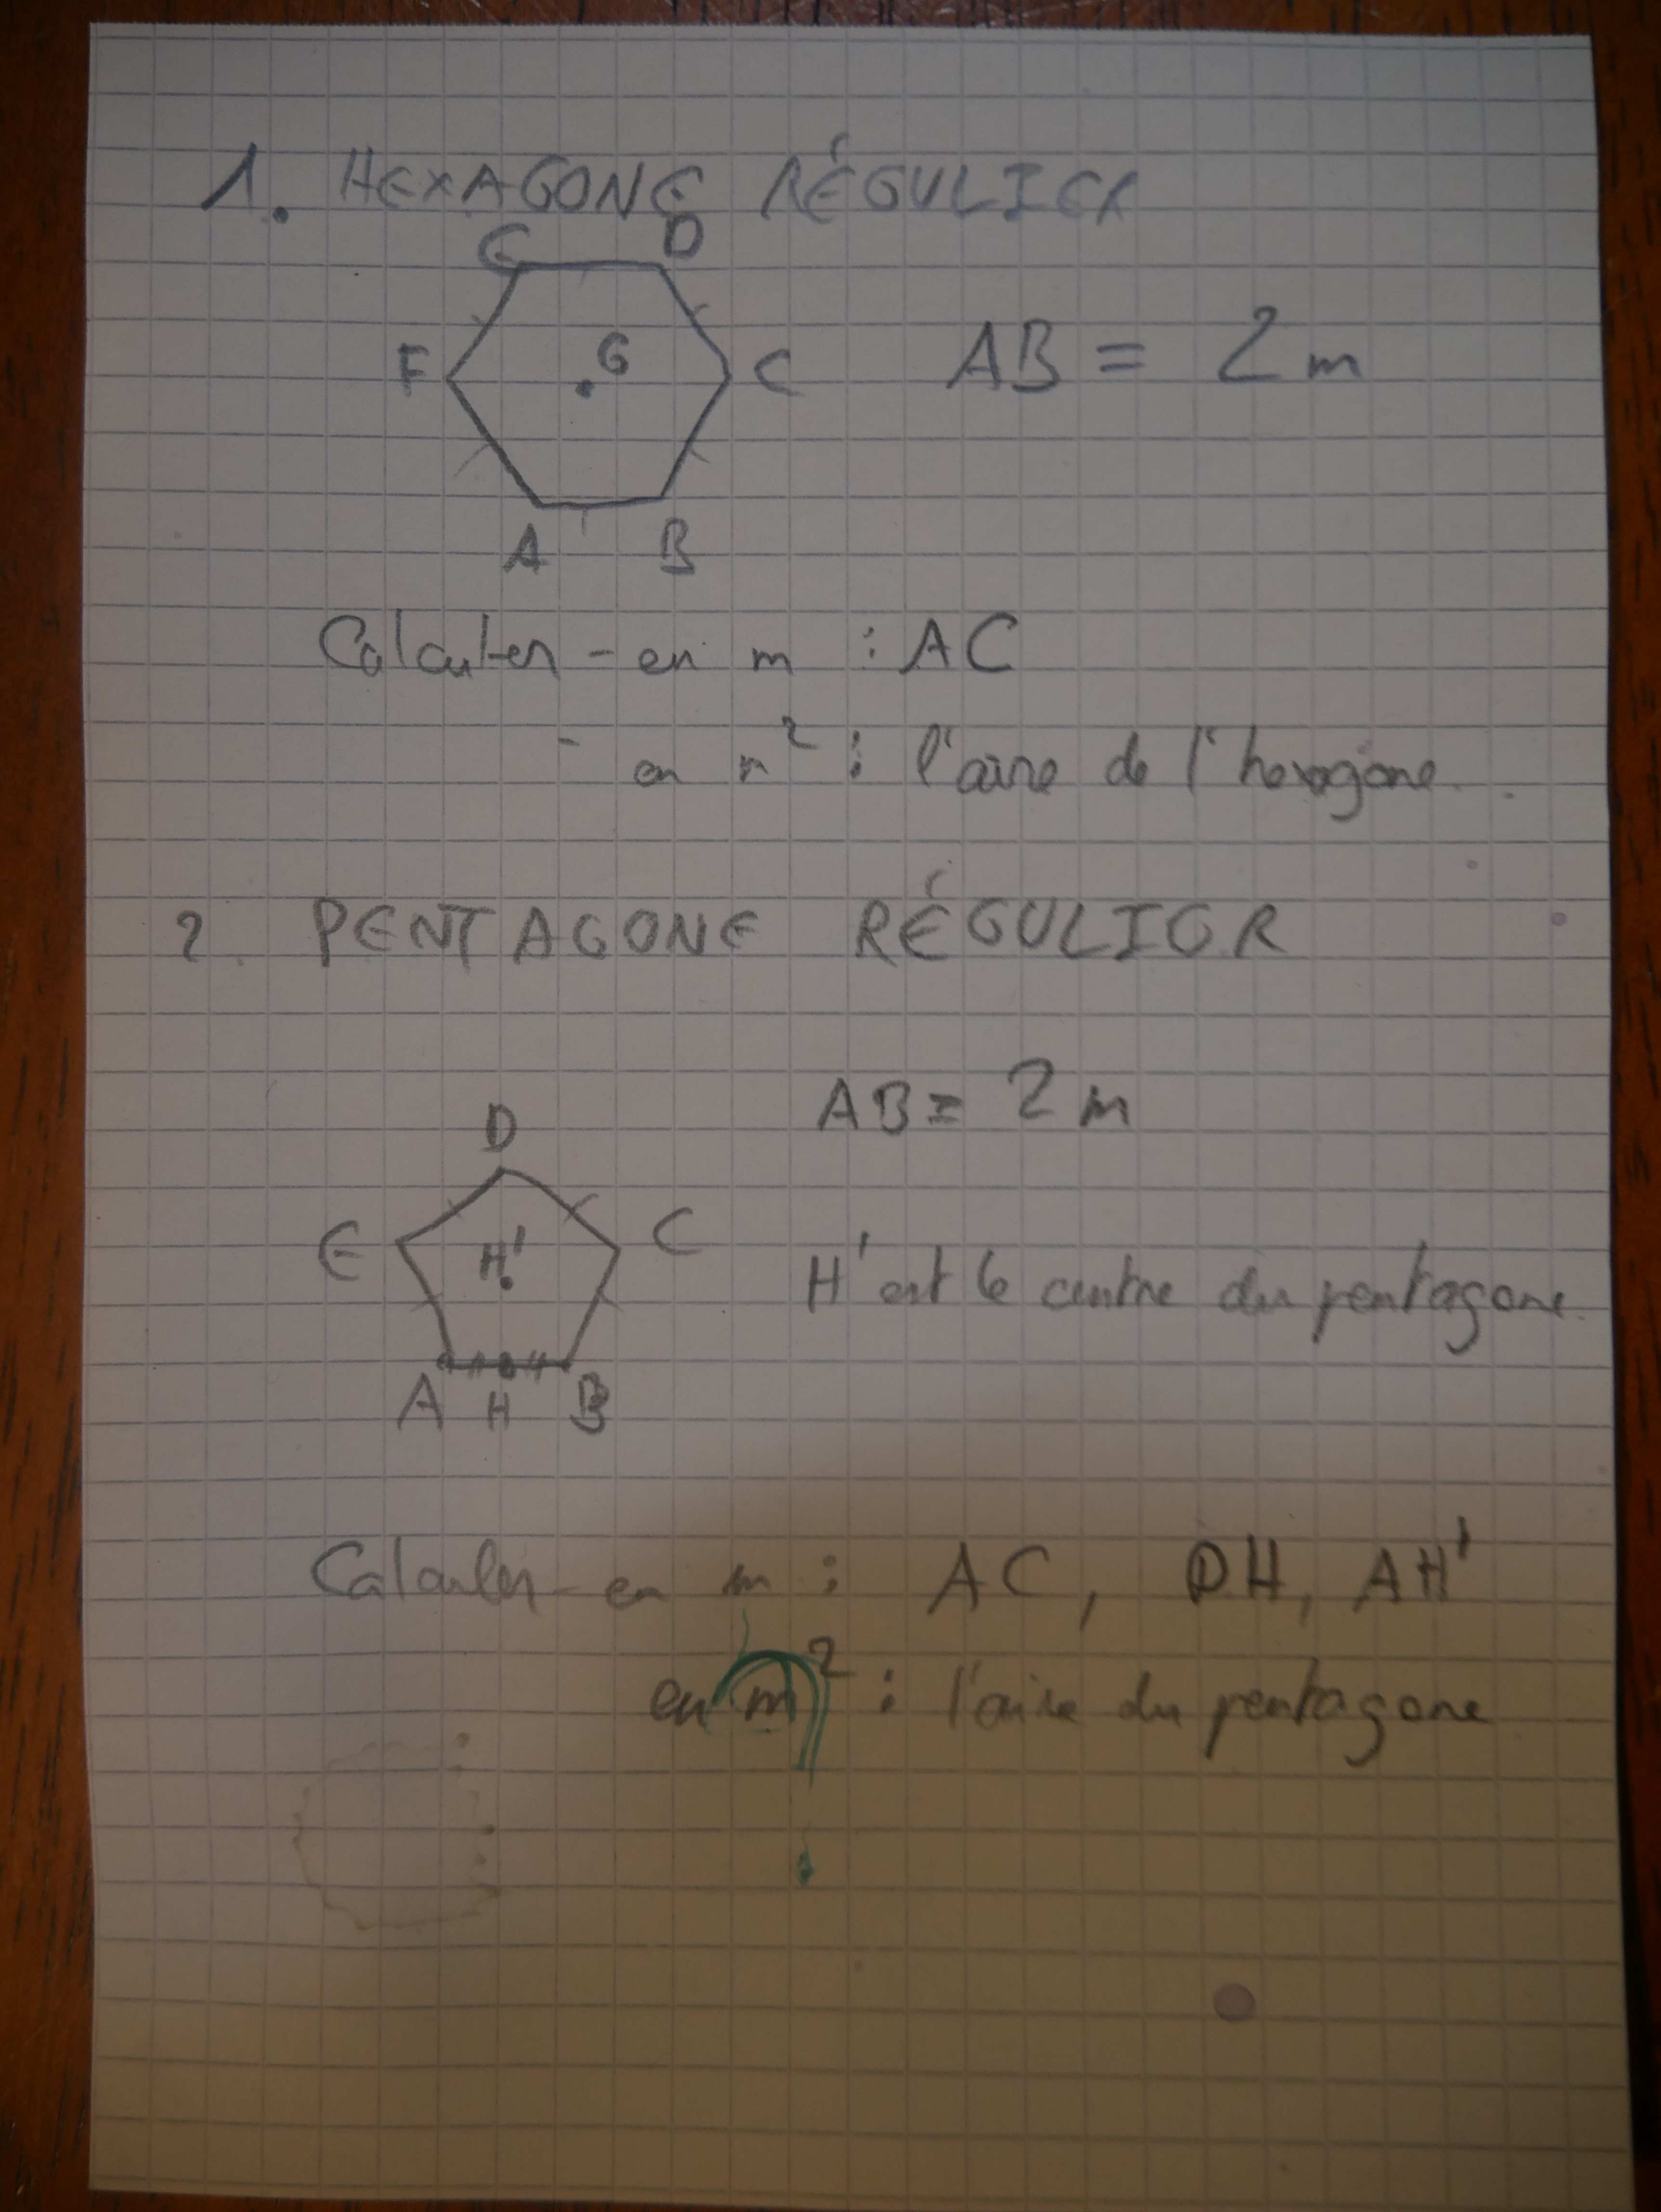 1. HEXAGONE RÉGULIER
E D
F G C AB = 2 m
A B
Calculer - en m : AC
- en m² : l'aire de l'hexagone.
2. PENTAGONE RÉGULIER
AB = 2 m
D
E H' C
H' est le centre du pentagone.
A H B
Calculer - en m : AC, DH, AH'
en m² : l'aire du pentagone